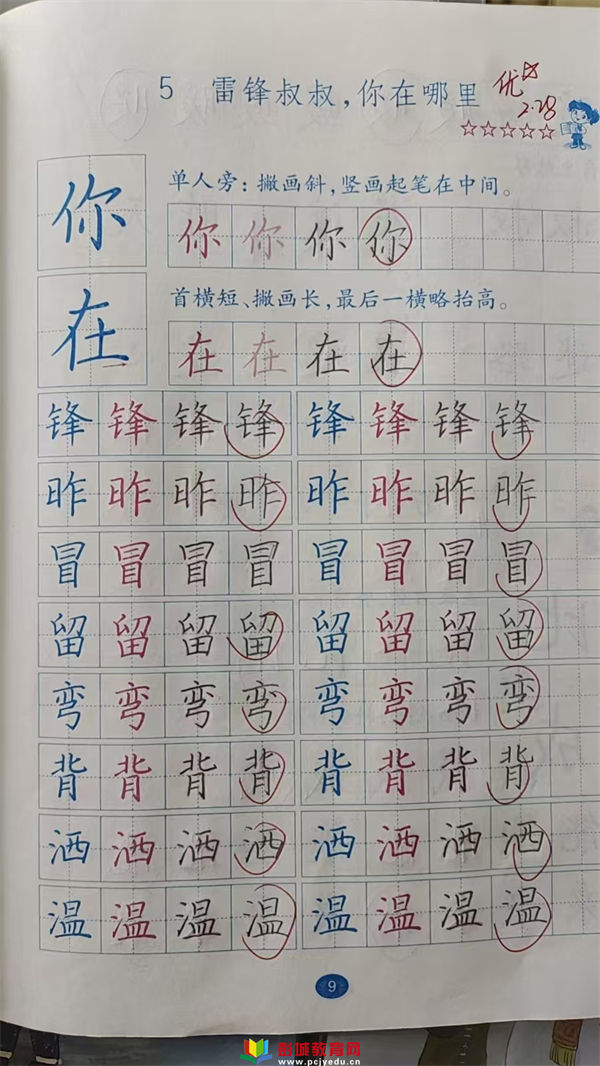 5 雷锋叔叔，你在哪里 优
2.28
☆☆☆☆☆
单人旁：撇画斜，竖画起笔在中间。
你 你 你 你 你
首横短、撇画长，最后一横略抬高。
在 在 在 在 在
锋 锋 锋 锋 锋 锋 锋 锋
昨 昨 昨 昨 昨 昨 昨 昨
冒 冒 冒 冒 冒 冒 冒 冒
留 留 留 留 留 留 留 留
弯 弯 弯 弯 弯 弯 弯 弯
背 背 背 背 背 背 背 背
洒 洒 洒 洒 洒 洒 洒 洒
温 温 温 温 温 温 温 温
9
彭城教育网
www.pcjyedu.cn